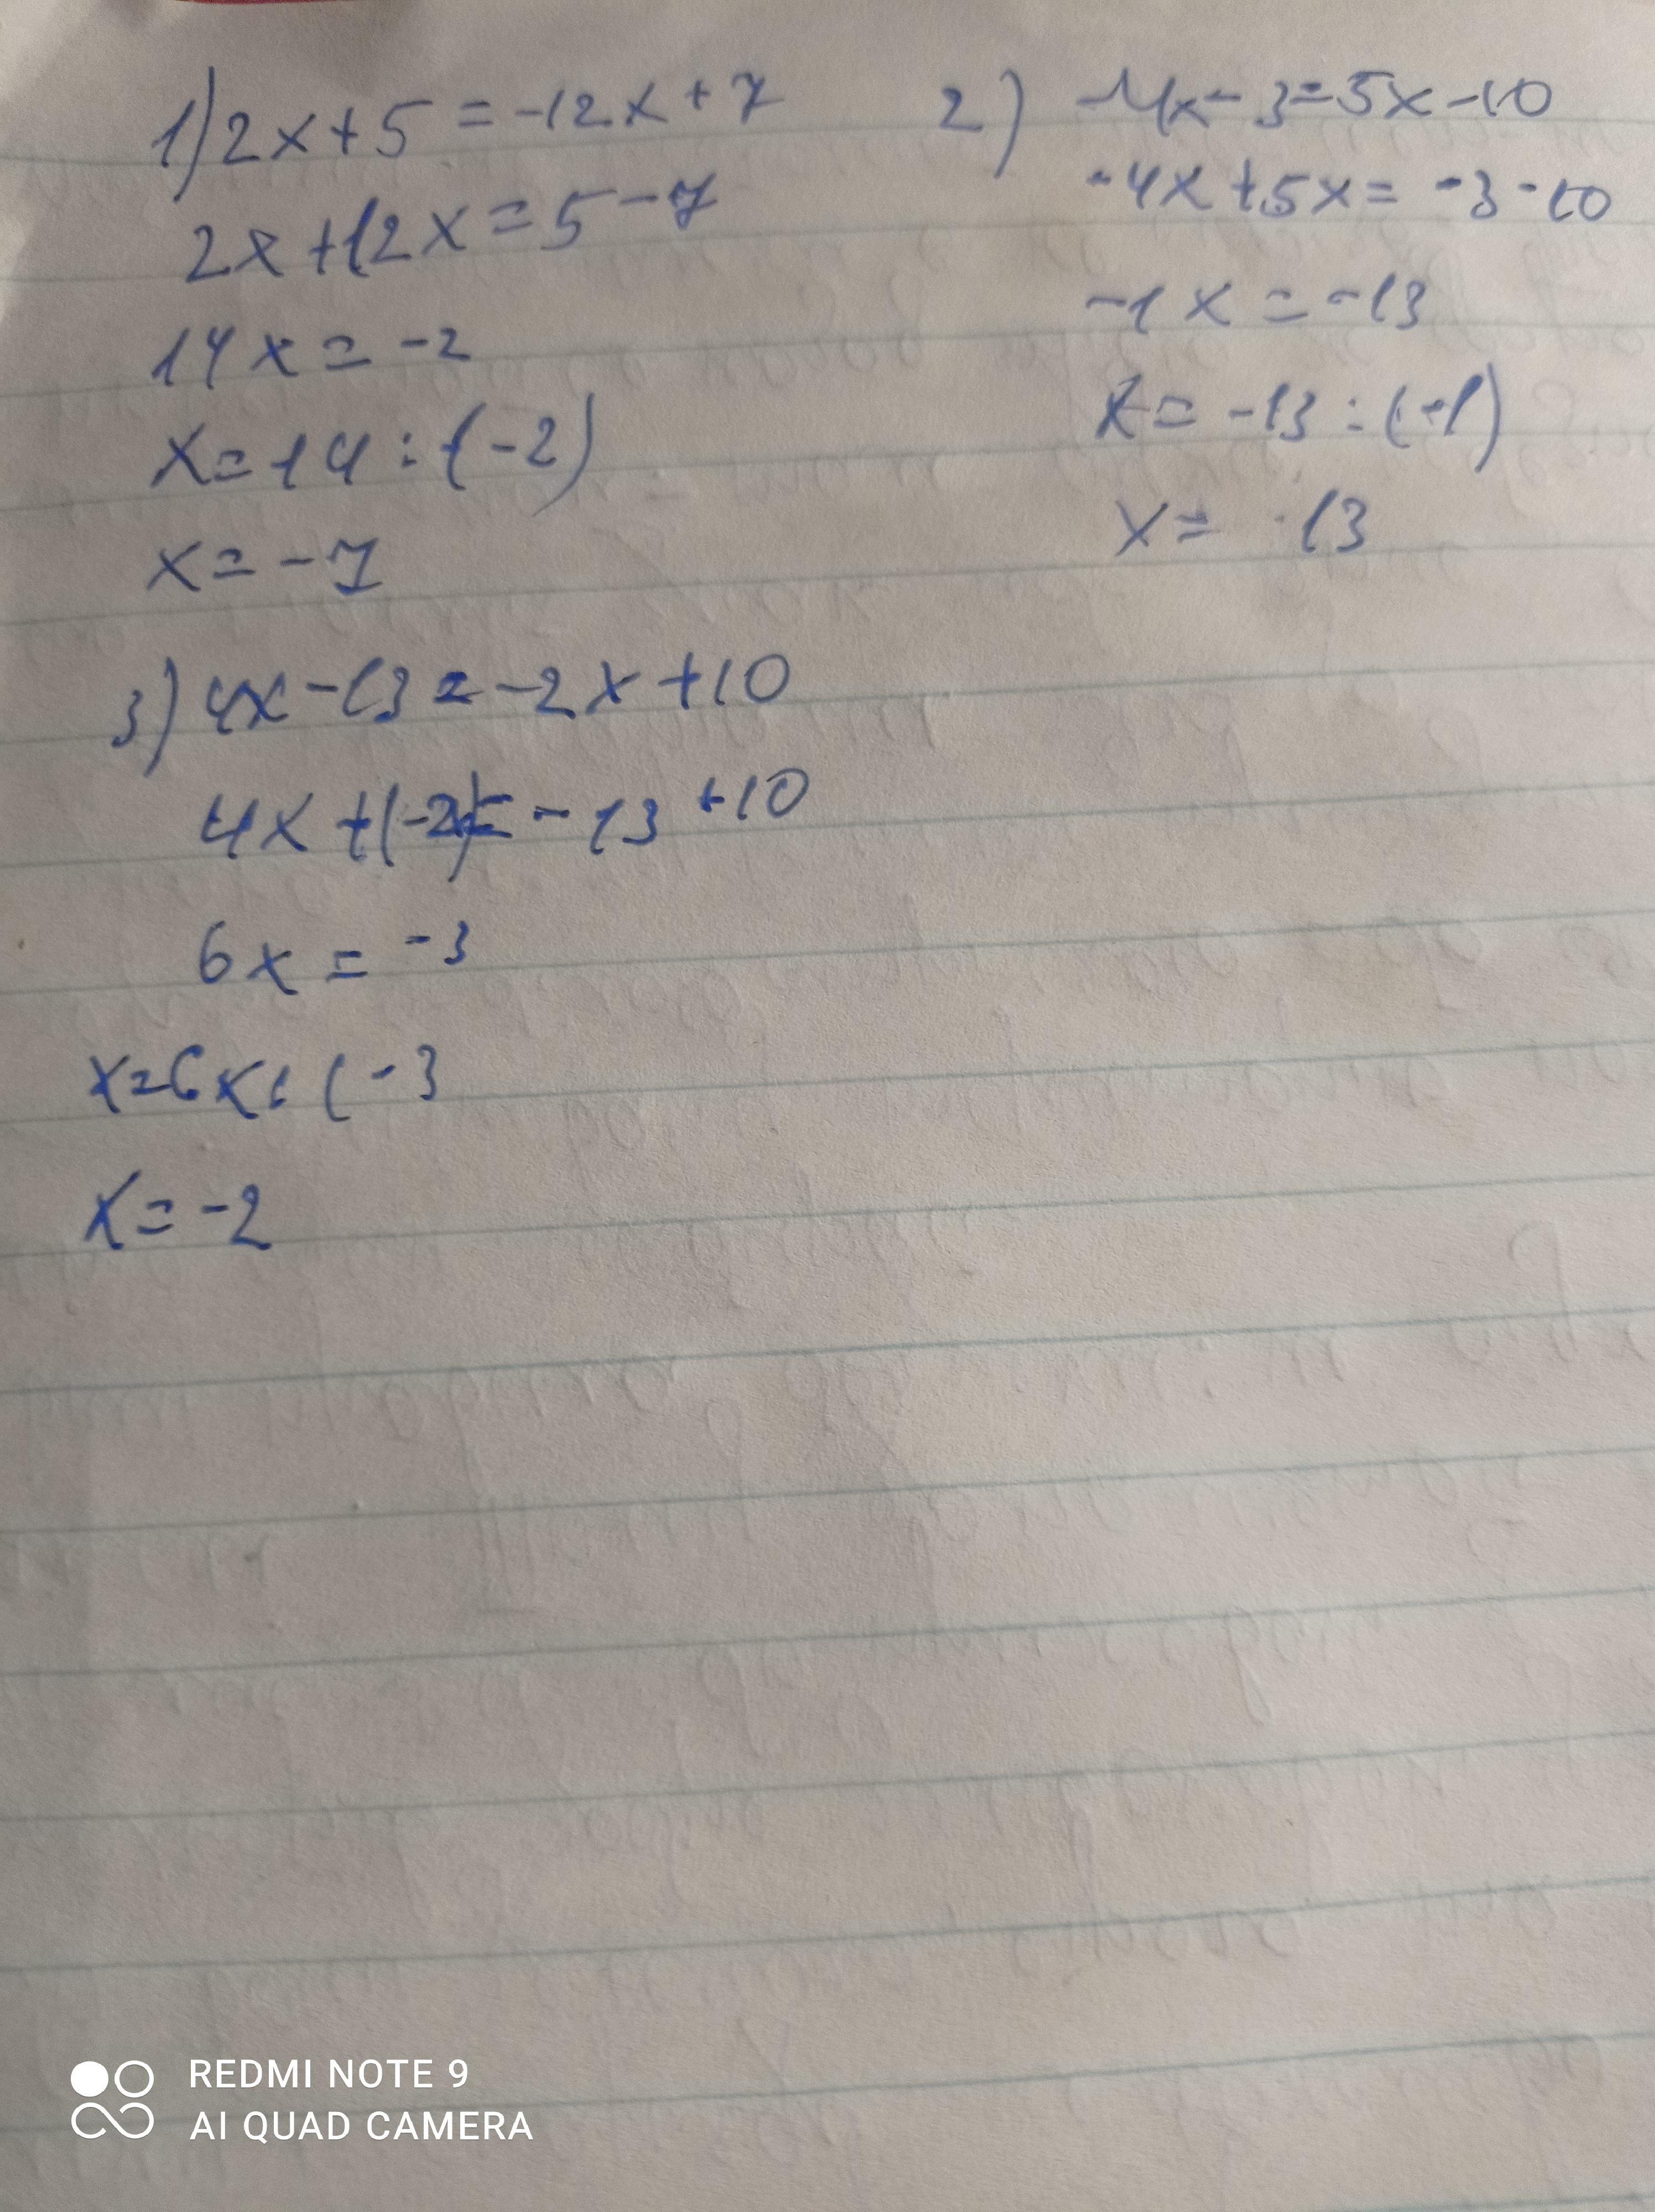 1) 2x+5=-12x+7
2x+12x=5-7
14x=-2
x=14:(-2)
x=-7
2) -4x-3=5x-10
-4x+5x=-3-10
-1x=-13
x=-13:(-1)
x=13
3) 4x-13=-2x+10
4x+(-2)=-13+10
6x=-3
x=6x:(-3
x=-2
REDMI NOTE 9
AI QUAD CAMERA